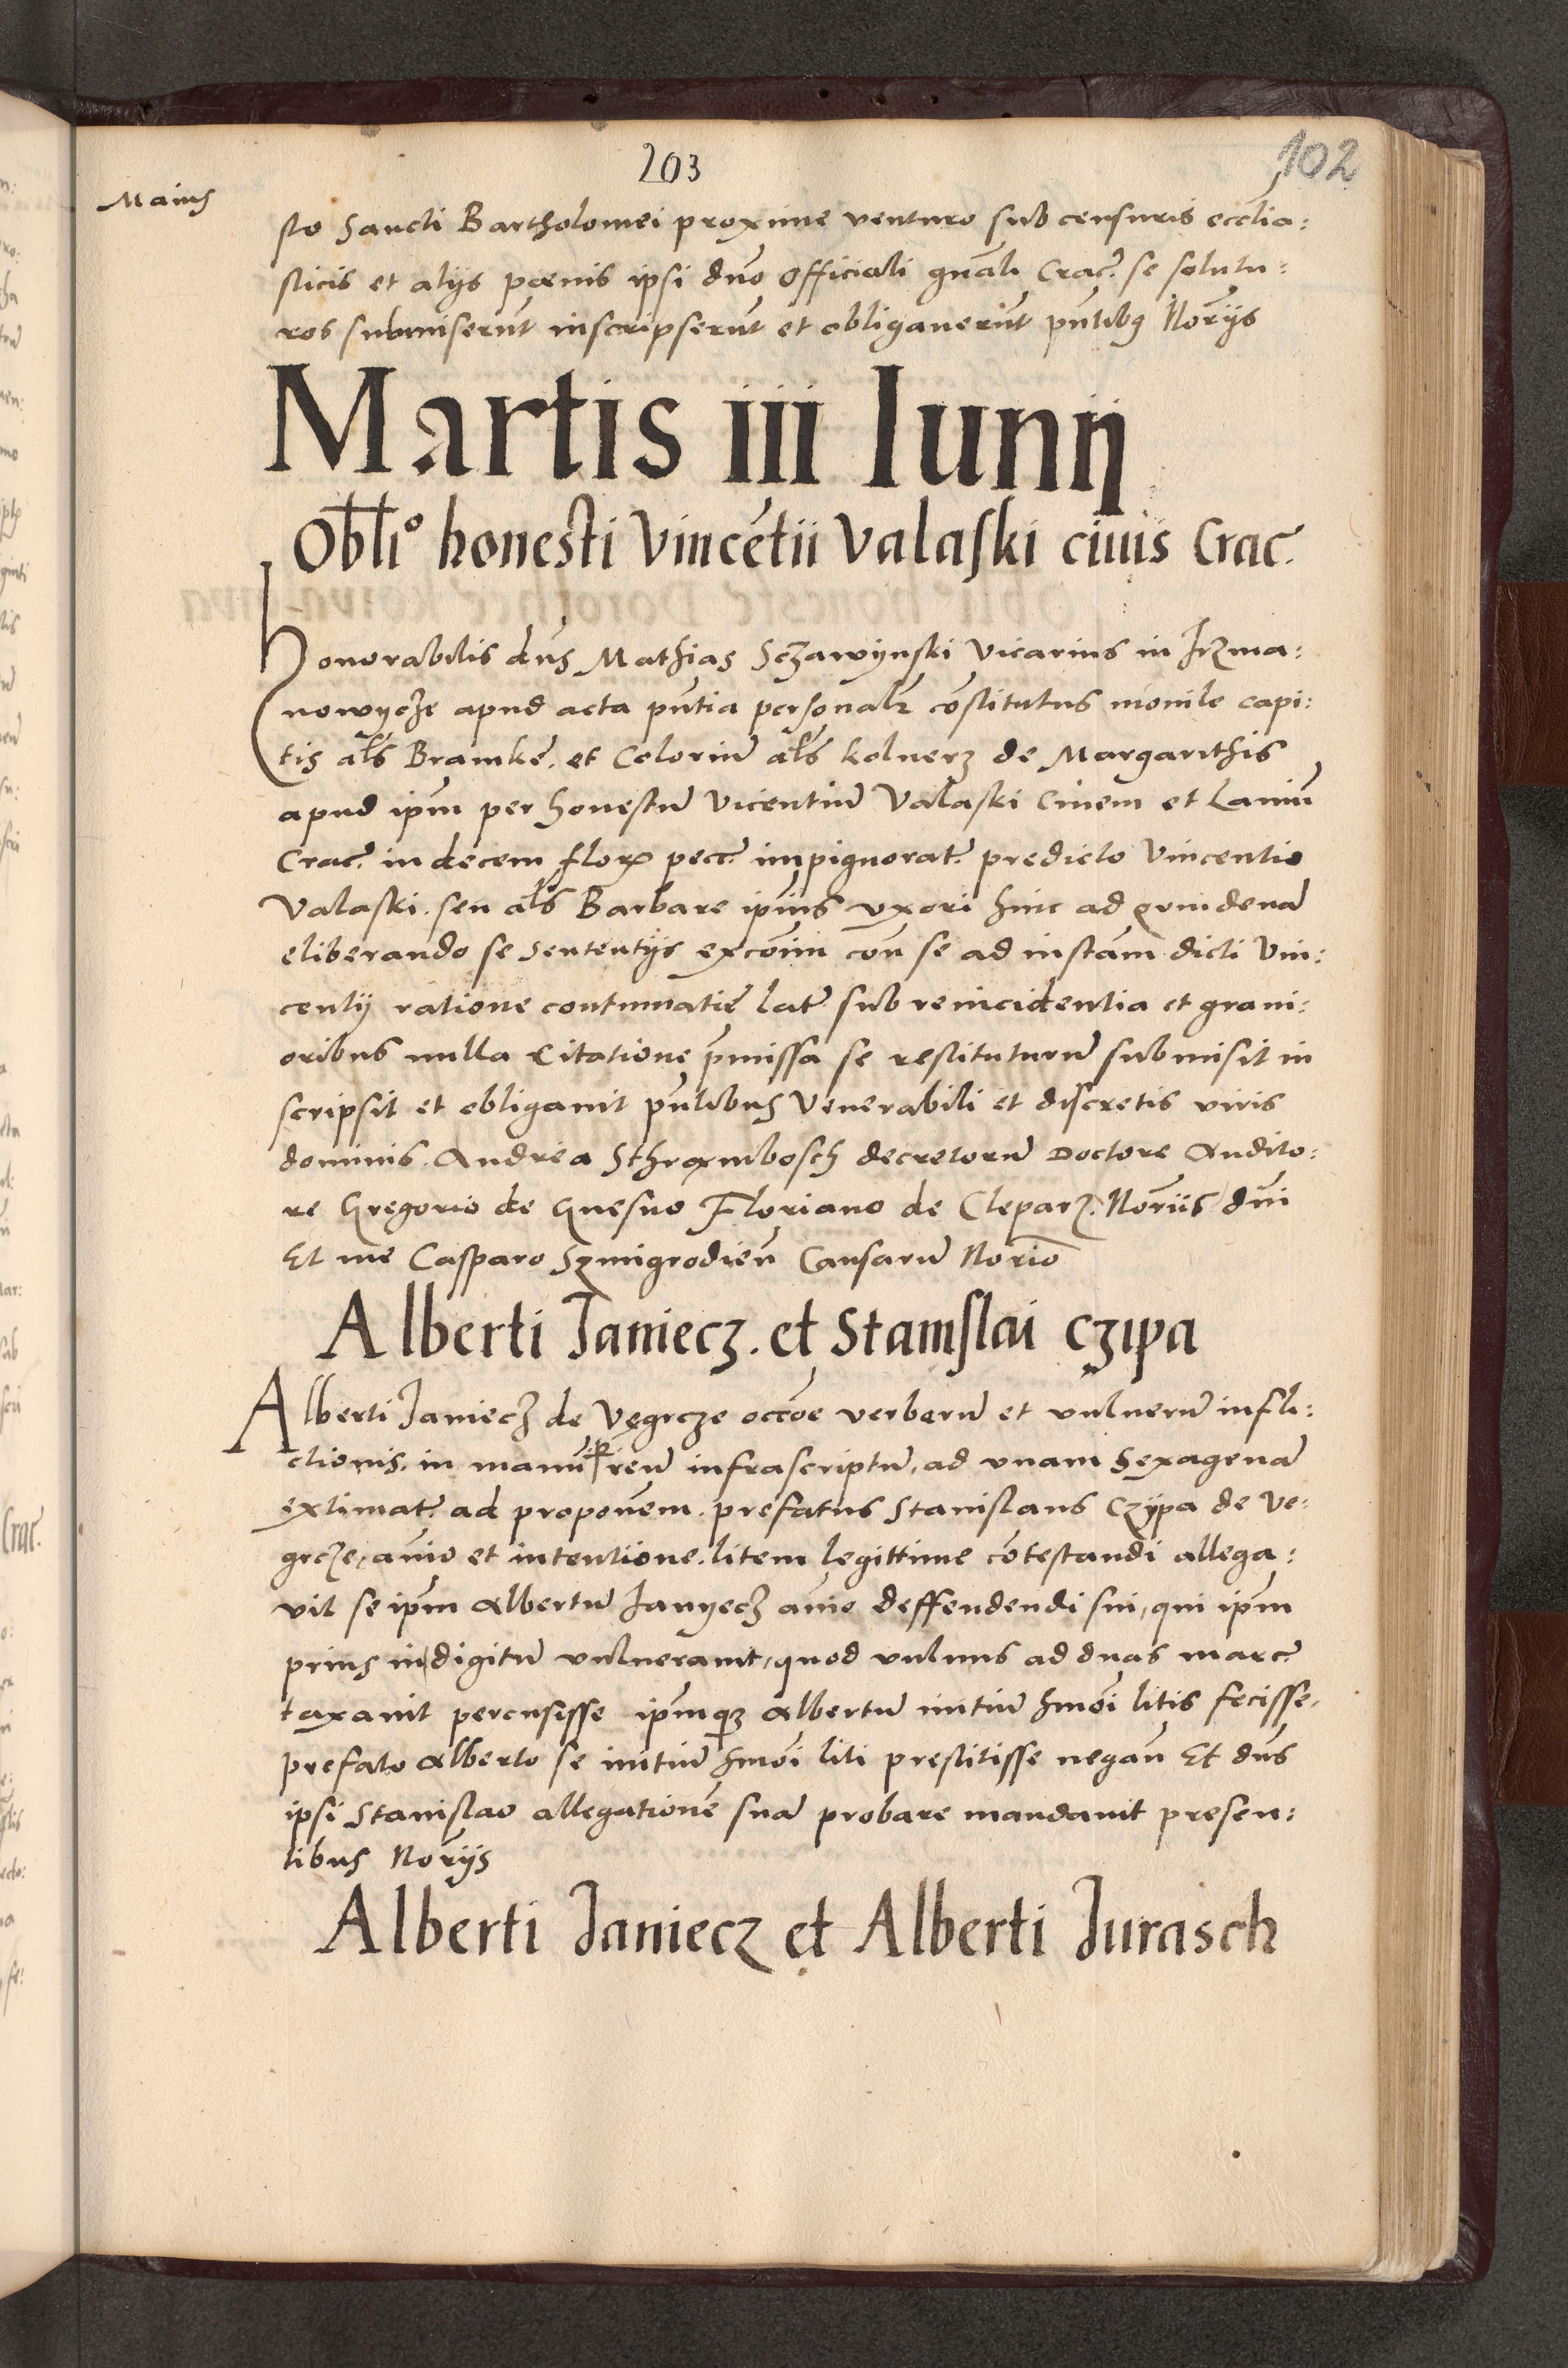 203
102
Maius
sto Sancti Bartholomei proxime venturo sub censuris ecclia:
sticis et alijs poenis ipsi dno Officiali gnali Crac. se solutu:
ros submiserut inscripserut et obligauerut pntibq Norijs
Martis iii Iunij
Obllo honesti Vincetii Valaski ciuis Crac.
Honorabilis dns Mathias Sczawynski Vicarius in Irzma:
nowycze apud acta pntia personalr costitutus monile capi:
tis als Bramke. et Coloriu als kolnerz de Margarithis
apud ipm per honestu Vicentiu Valaski Ciuem et Laniu
Crac. in decem flor pecc. impignorat. predicto Vincentio
Valaski. seu als Barbare ipius vxori hinc ad quindena
eliberando se sententijs excoim con se ad instam dicti Vin:
centij ratione contumatie lat. sub reincidentia et graui:
oribus nulla citatione pmissa se restituturu submisit in
scripsit et obligauit pntibus Venerabili et discretis viris
dominis. Andrea Sthrambosch decretoru Doctore Audito:
re Gregorio de Gnesno Floriano de Cleparz. Noriis dni
Et me Casparo Szmigrodien Causaru Norio
Alberti Janiecz. et Stanislai Czipa
Alberti Janiecz de Vęgrcze occoe verberu et vulneru infli:
ctionis. in manu p reu infrascriptu, ad vnam Sexagena
extimat. ad proponem. prefatus Stanislaus Czypa de Ve:
grcze, aio et intentione. litem legittime cotestandi allega:
vit se ipm Albertu Janyecz aio deffendendi sui, qui ipm
prius in digitu vulnerauit, quod vulnus ad duas marc.
taxauit percusisse ipmqz Albertu initiu hmoi litis fecisse,
prefato Alberto se initiu hmoi liti prestitisse negan Et dns
ipsi Stanislao allegatione sua probare mandauit presen:
tibus Norijs
Alberti Janiecz et Alberti Jurasch